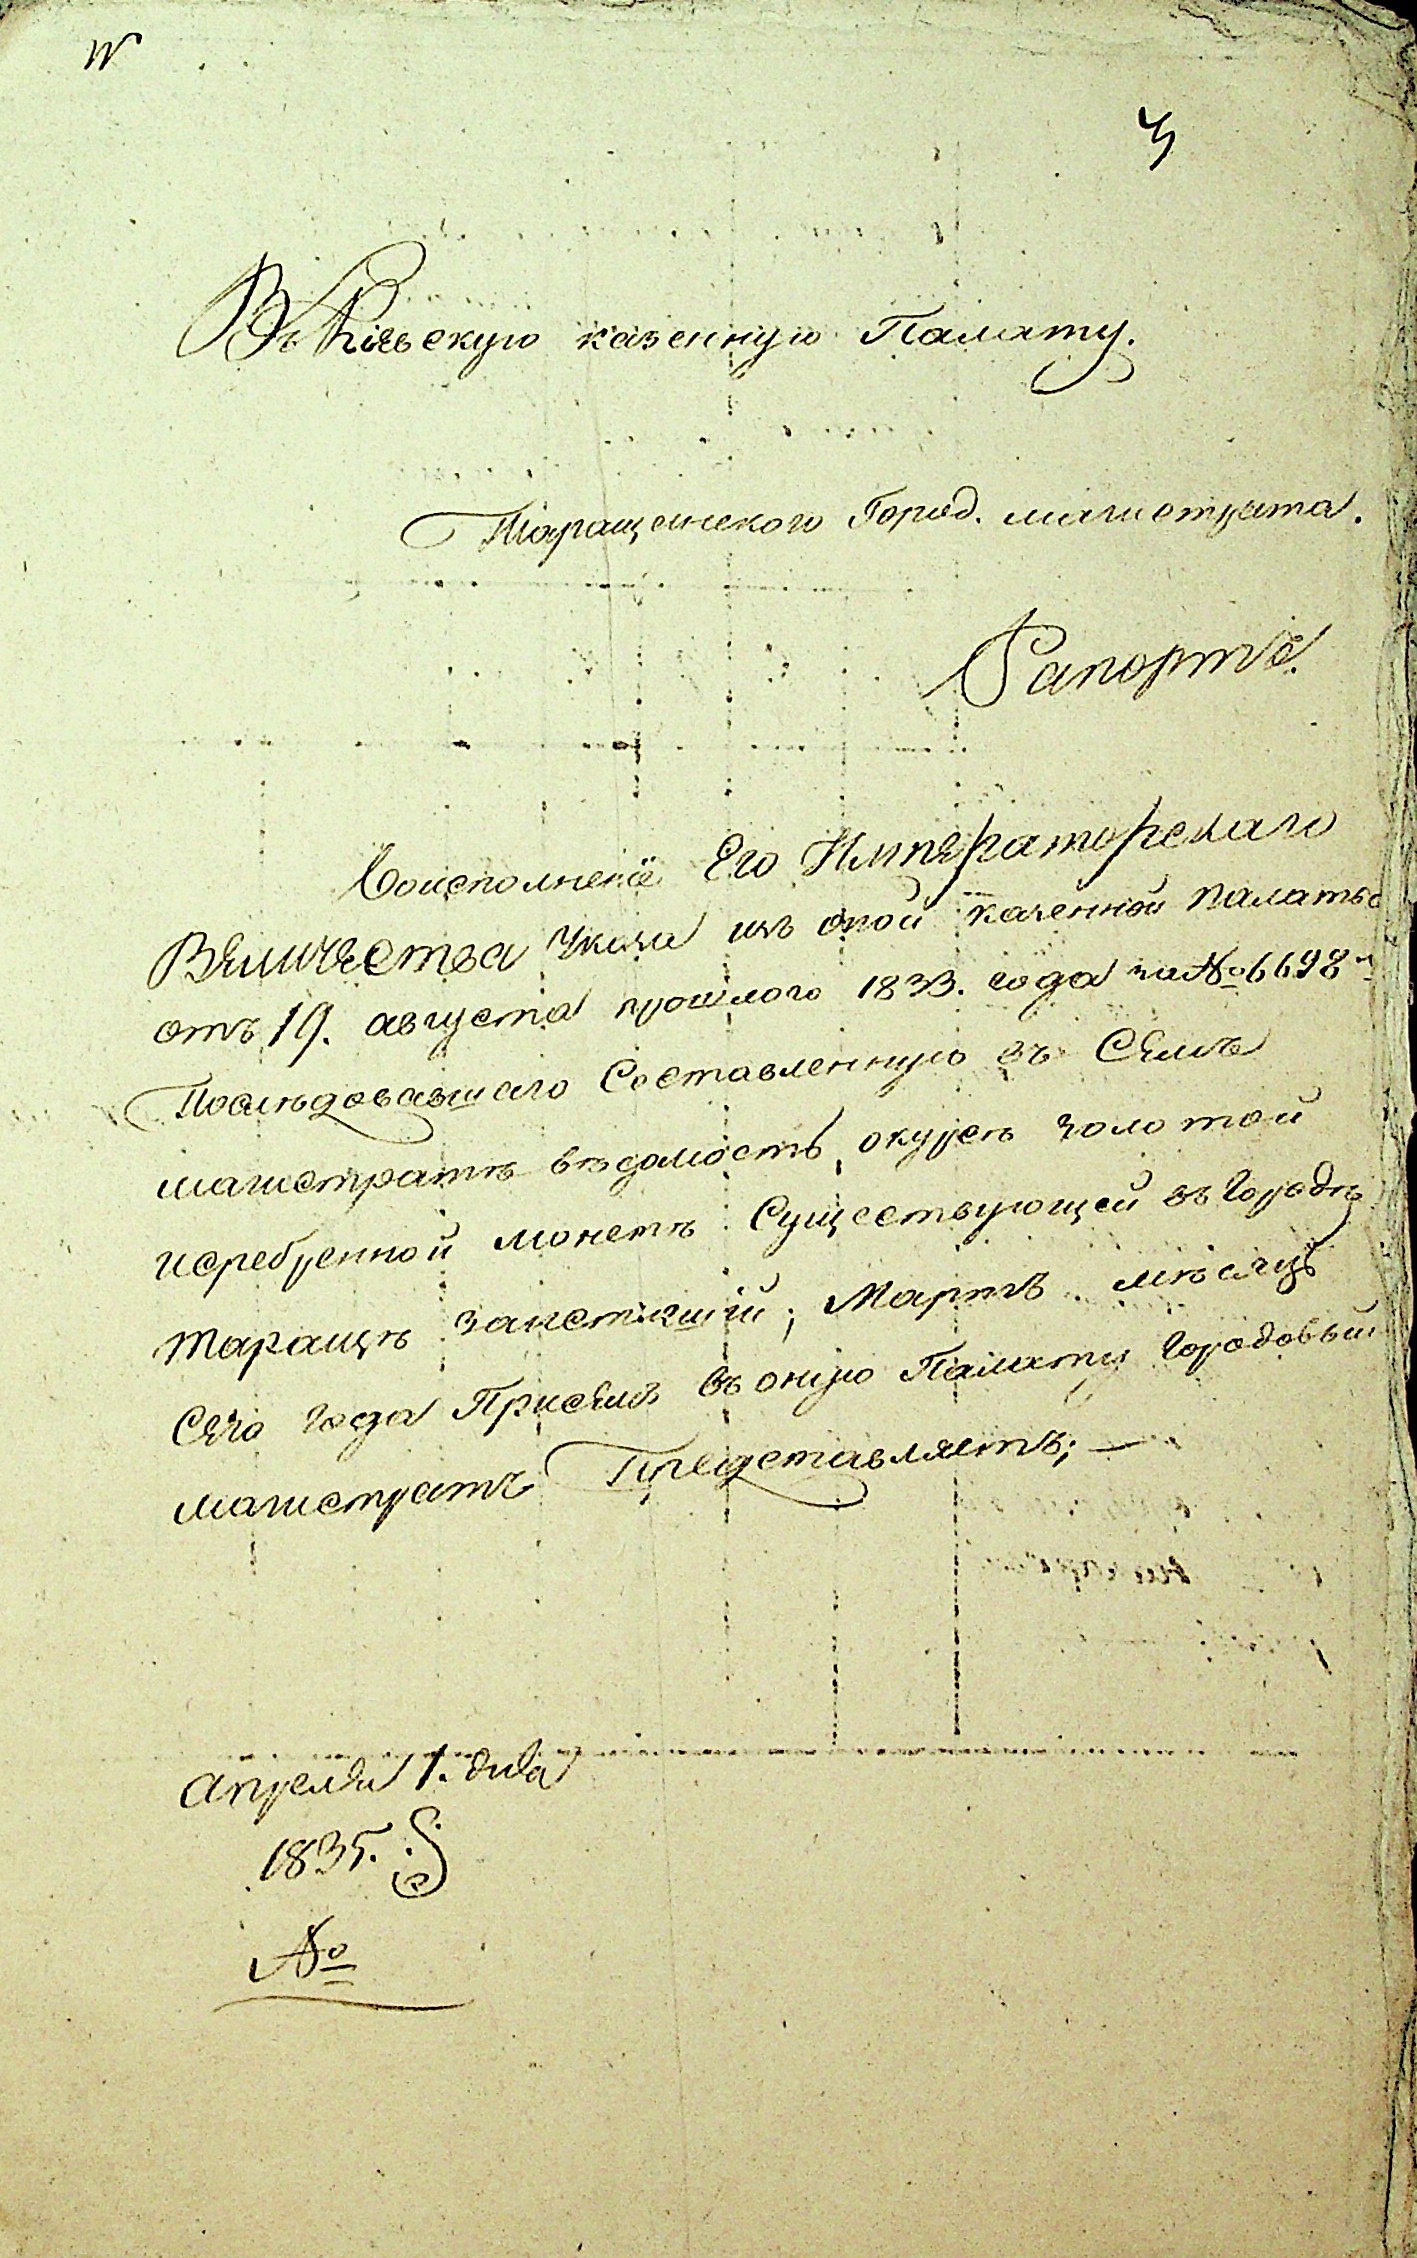 Въ Кіевскую казенную Палату.
Таращанского Город. магистрата.
Рапортъ.
Воисполненіе Его Императорскаго
Величества Указа изъ оной казенной Палаты
отъ 19. августа прошлого 1833. года за № 6698м
Последовавшаго Составленную въ Семъ
магистратѣ вѣдомость, окурсѣ золотой
исребренной монетѣ Существующей въ Городѣ
Таращѣ заистекшій, Мартъ мѣсяцъ
Сего года Присемъ въ оную Палату Городовый
магистратъ Представляетъ; —
Апреля 1. дня
1835.
№